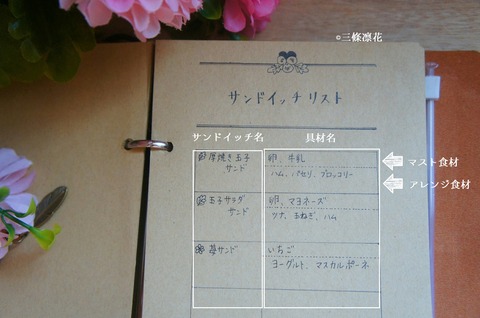 ©三條凛花
サンドイッチリスト
サンドイッチ名 具材名
厚焼き玉子 卵、牛乳 マスト食材
サンド ハム、パセリ、ブロッコリー アレンジ食材
玉子サラダ 卵、マヨネーズ
サンド ツナ、玉ねぎ、ハム
苺サンド いちご
ヨーグルト、マスカルポーネ